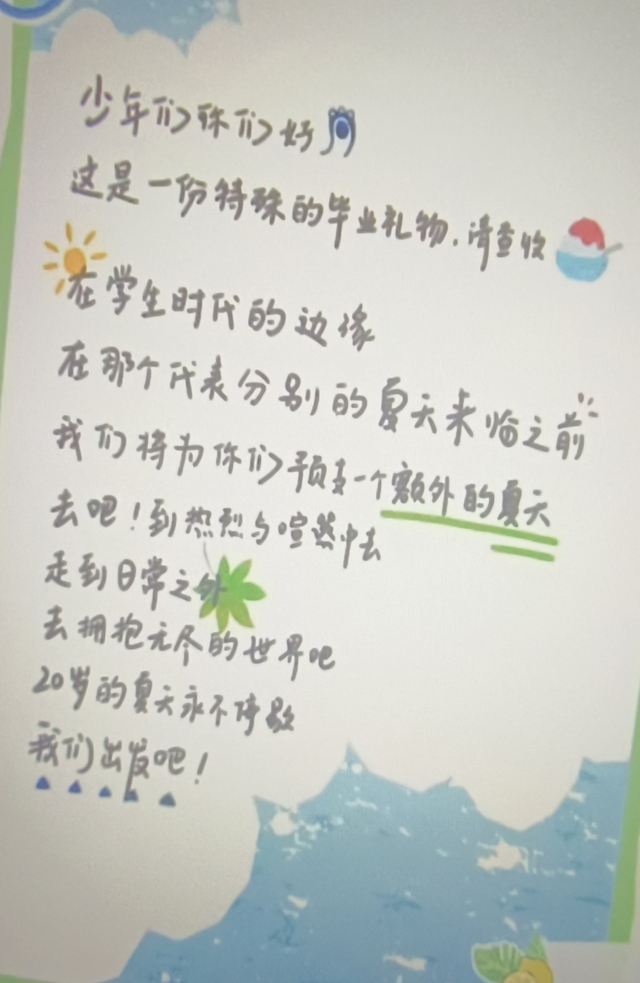 少年们你们好
这是一份特殊的毕业礼物，请查收
在学生时代的边缘
在那个代表分别的夏天来临之前
我们将为你们预支一个额外的夏天
去吧！到热烈与喧然中去
走到日常之外
去拥抱无尽的世界吧
20岁的夏天永不停歇
我们出发吧！